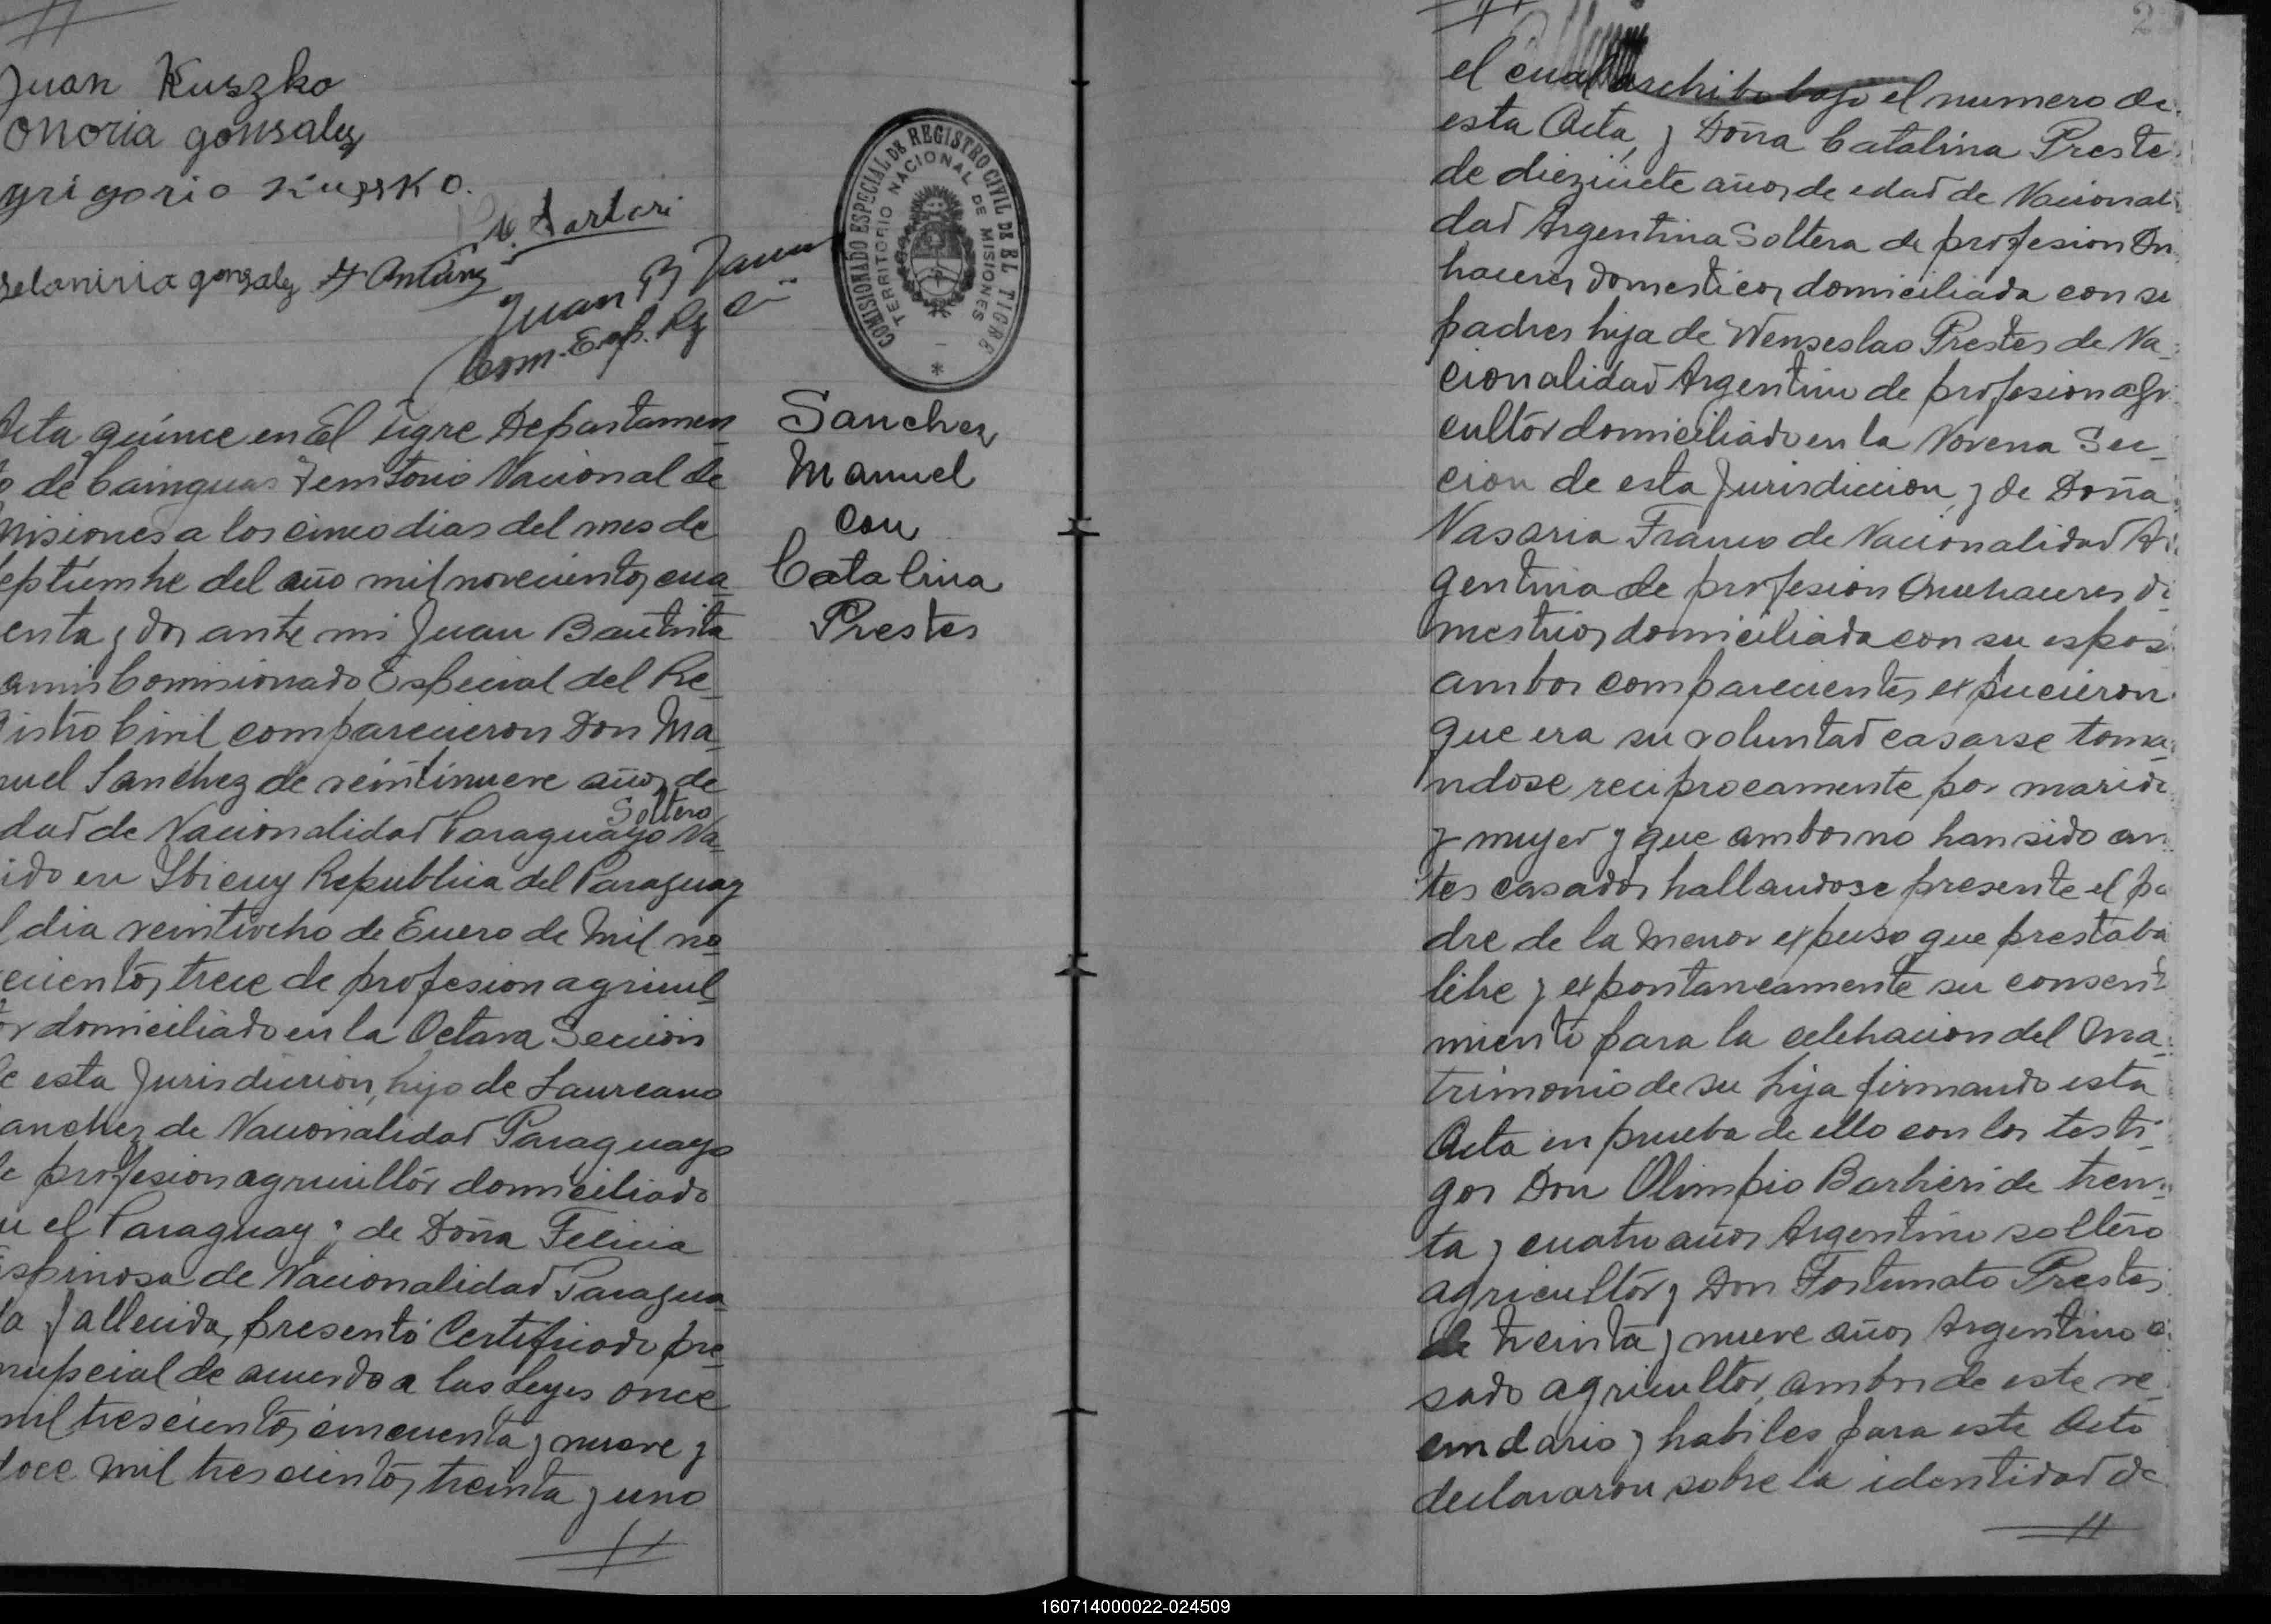 Juan Kuszko
Onoria gonsalez
grigorio Kuszko.
A. Sartori
gonzalez
Juan B
Com. Esp. Rg Ci
COMISIONADO ESPECIAL DE REGISTRO CIVIL DE EL TIGRE
TERRITORIO NACIONAL DE MISIONES
Sanchez
Manuel
con
Catalina
Prestes
Acta quince en El tigre Departamen
o de Cainguas Territorio Nacional de
Misiones a los cinco dias del mes de
eptiembre del año mil novecientos cua
enta y dos ante mi Juan Bautista
amis Comisionado Especial del Re
istro Civil comparecieron Don Ma
nuel Sanchez de veintinueve años de
Soltero
dad de Nacionalidad Paraguayo Na
ido en Ibicuy Republica del Paraguay
l dia veintiocho de Enero de Mil no
ecientos trece de profesion agricul
or domiciliado en la Octava Seccion
e esta Jurisdiccion, hijo de Laureano
anchez de Nacionalidad Paraguayo
e profesion agricultor domiciliado
n el Paraguay y de Doña Felicia
spinosa de Nacionalidad Paragua
a fallecida, presentó Certificado pre
nupcial de acuerdo a las Leyes once
mil trescientos cincuenta y nueve y
doce mil trescientos treinta y uno
2
el cual archibo bajo el numero de
esta Acta, y Doña Catalina Preste
de diezisiete años de edad de Nacionali
dad Argentina Soltera de profesion Qu
haceres domesticos domiciliada con su
padres hija de Wenseslao Prestes de Na
cionalidad Argentino de profesion agri
cultor domiciliado en la Novena Sec
cion de esta Jurisdiccion y de Doña
Nasaria Franco de Nacionalidad Ar
gentina de profesion Quehaceres do
mesticos domiciliada con su espos
ambos comparecientes expucieron
que era su voluntad casarse toma
ndose reciprocamente por marido
y mujer y que ambos no han sido an
tes casados hallandose presente el pa
dre de la Menor expuso que prestaba
libre y expontaneamente su consenti
miento para la celebracion del Ma
trimonio de su hija firmando esta
Acta en prueba de ello con los testi
gos Don Olimpio Barbieri de trein
ta y cuatro años Argentino soltero
agricultor y Don Fortunato Prestes
de treinta y nueve años Argentino ca
sado agricultor, ambos de este ve
cindario y habiles para este Acto
declararon sobre la identidad de
160714000022-024509